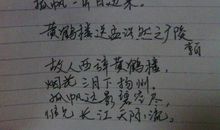 孤帆一片日边来。
黄鹤楼送孟浩然之广陵
李白
故人西辞黄鹤楼,
烟花三月下扬州。
孤帆远影碧空尽,
唯见长江天际流。